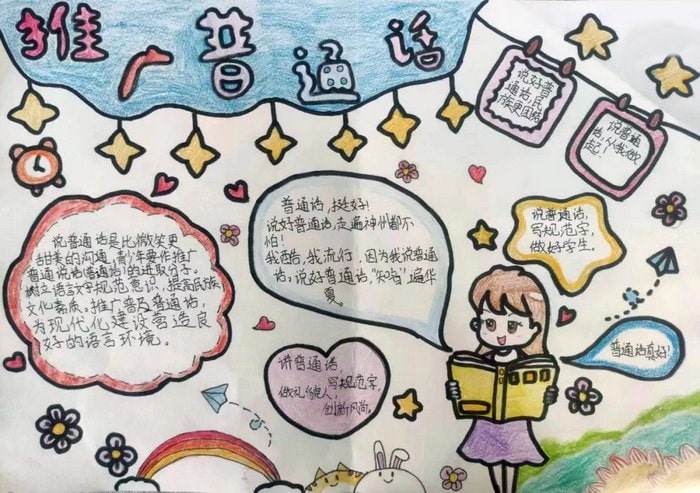 推广普通话
说好普
通话,民
族更团结
说普通
话,从我做
起!
说普通话是比微笑更
甜柔的沟通,青少年要作推广
普通说话(普通话)的进取分子。
树立语言文字规范意识,提高民族
文化素质。推广普及普通话,
为现代化建设营造良
好的语言环境。
普通话,挺好!
说好普通话,走遍神州都不
怕!
我酉酷,我流行,因为我说普通
话。说好普通话,“知音”遍华
夏。
说普通话,
写规范字,
做好学生。
普通话真好!
讲普通话
写规范字,
做礼貌人,
创新风尚。